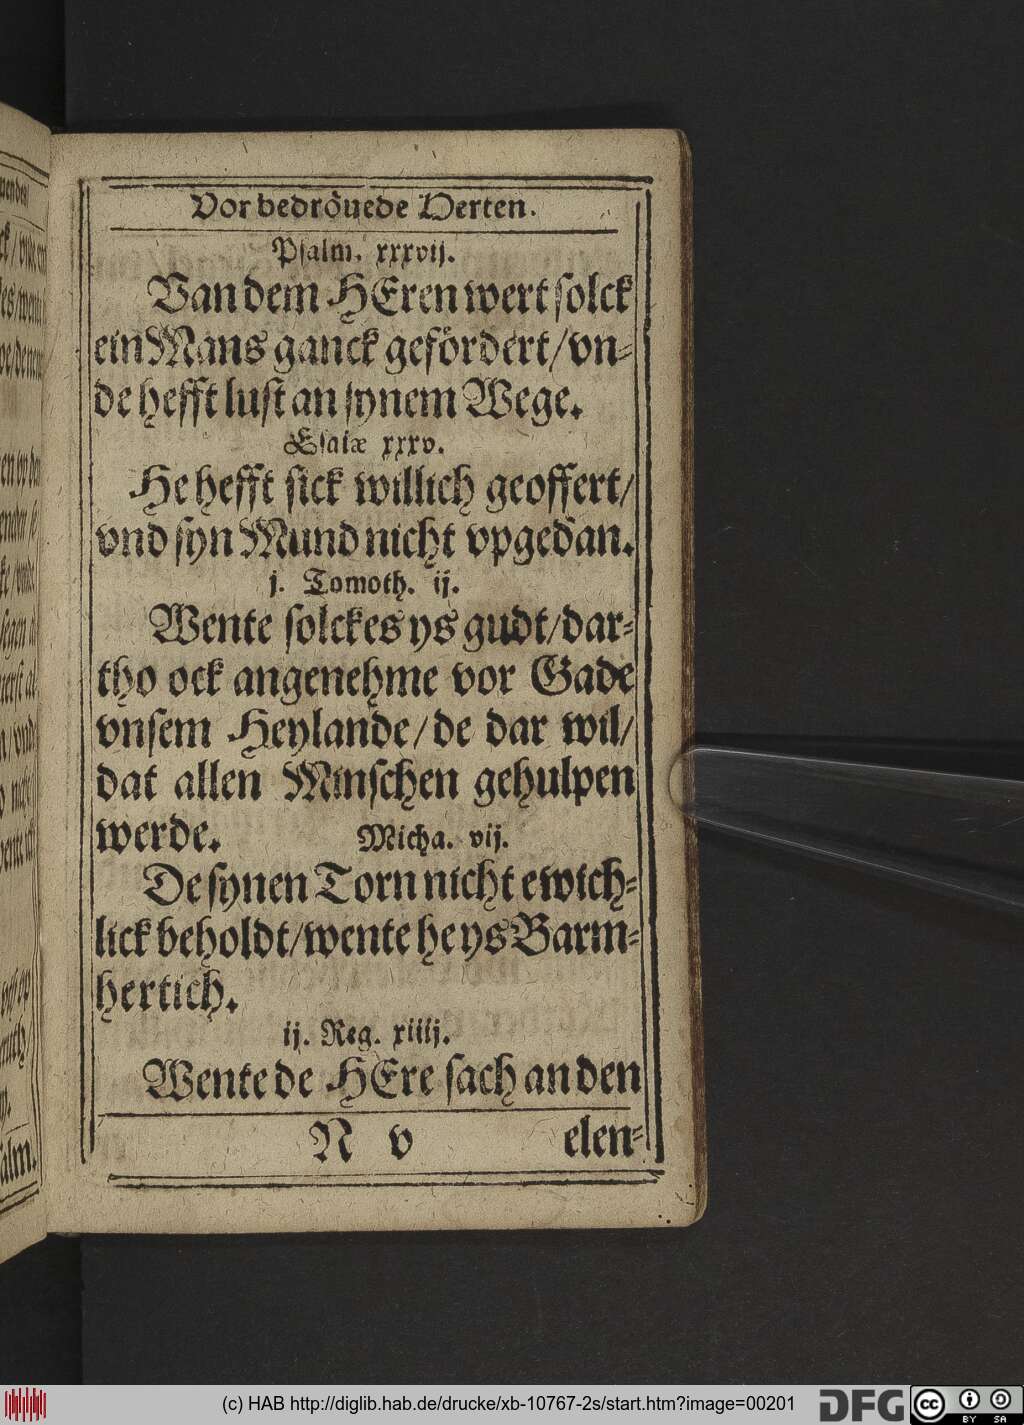 Vor bedröuede Herten.
Psalm. xxxvij.
Van dem HEren wert solck
ein Mans ganck gefördert/ vn-
de hefft lust an synem Wege.
Esaiæ xxxv.
He hefft sick willich geoffert/
vnd syn Mund nicht vpgedan.
j. Tomoth. ij.
Wente solckes ys gudt/ dar-
tho ock angenehme vor Gade
vnsem Heylande/ de dar wil/
dat allen Minschen gehulpen
werde. Micha. vij.
De synen Torn nicht ewich-
lick beholdt/ wente he ys Barm-
hertich.
ij. Reg. xiiij.
Wente de HEre sach an den
N v elen-
(c) HAB http://diglib.hab.de/drucke/xb-10767-2s/start.htm?image=00201
DFG
cc
BY SA